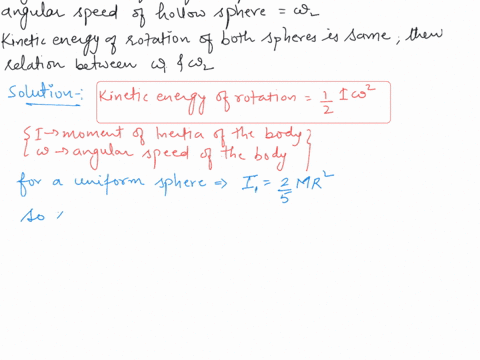 angular speed of hollow sphere = ω₂
Kinetic energy of rotation of both spheres is same, then
relation between ω₁ & ω₂
Solution-:
Kinetic energy of rotation = 1/2 I ω²
{ I → moment of Inertia of the body }
{ ω → angular speed of the body }
for a uniform sphere ⇒ I₁ = 2/5 MR²
So